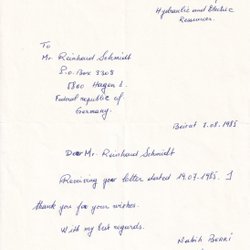 Hydraulic and Electric
Resources.
To
Mr. Reinhard Schmidt
P.O. Box 3303
5800 Hagen 1.
Federal republic of
Germany.
Beirut 1.08.1985
Dear Mr. Reinhard Schmidt
Receiving your letter dated 19.07.1985. I
thank you for your wishes.
With my best regards.
Nabih Berri